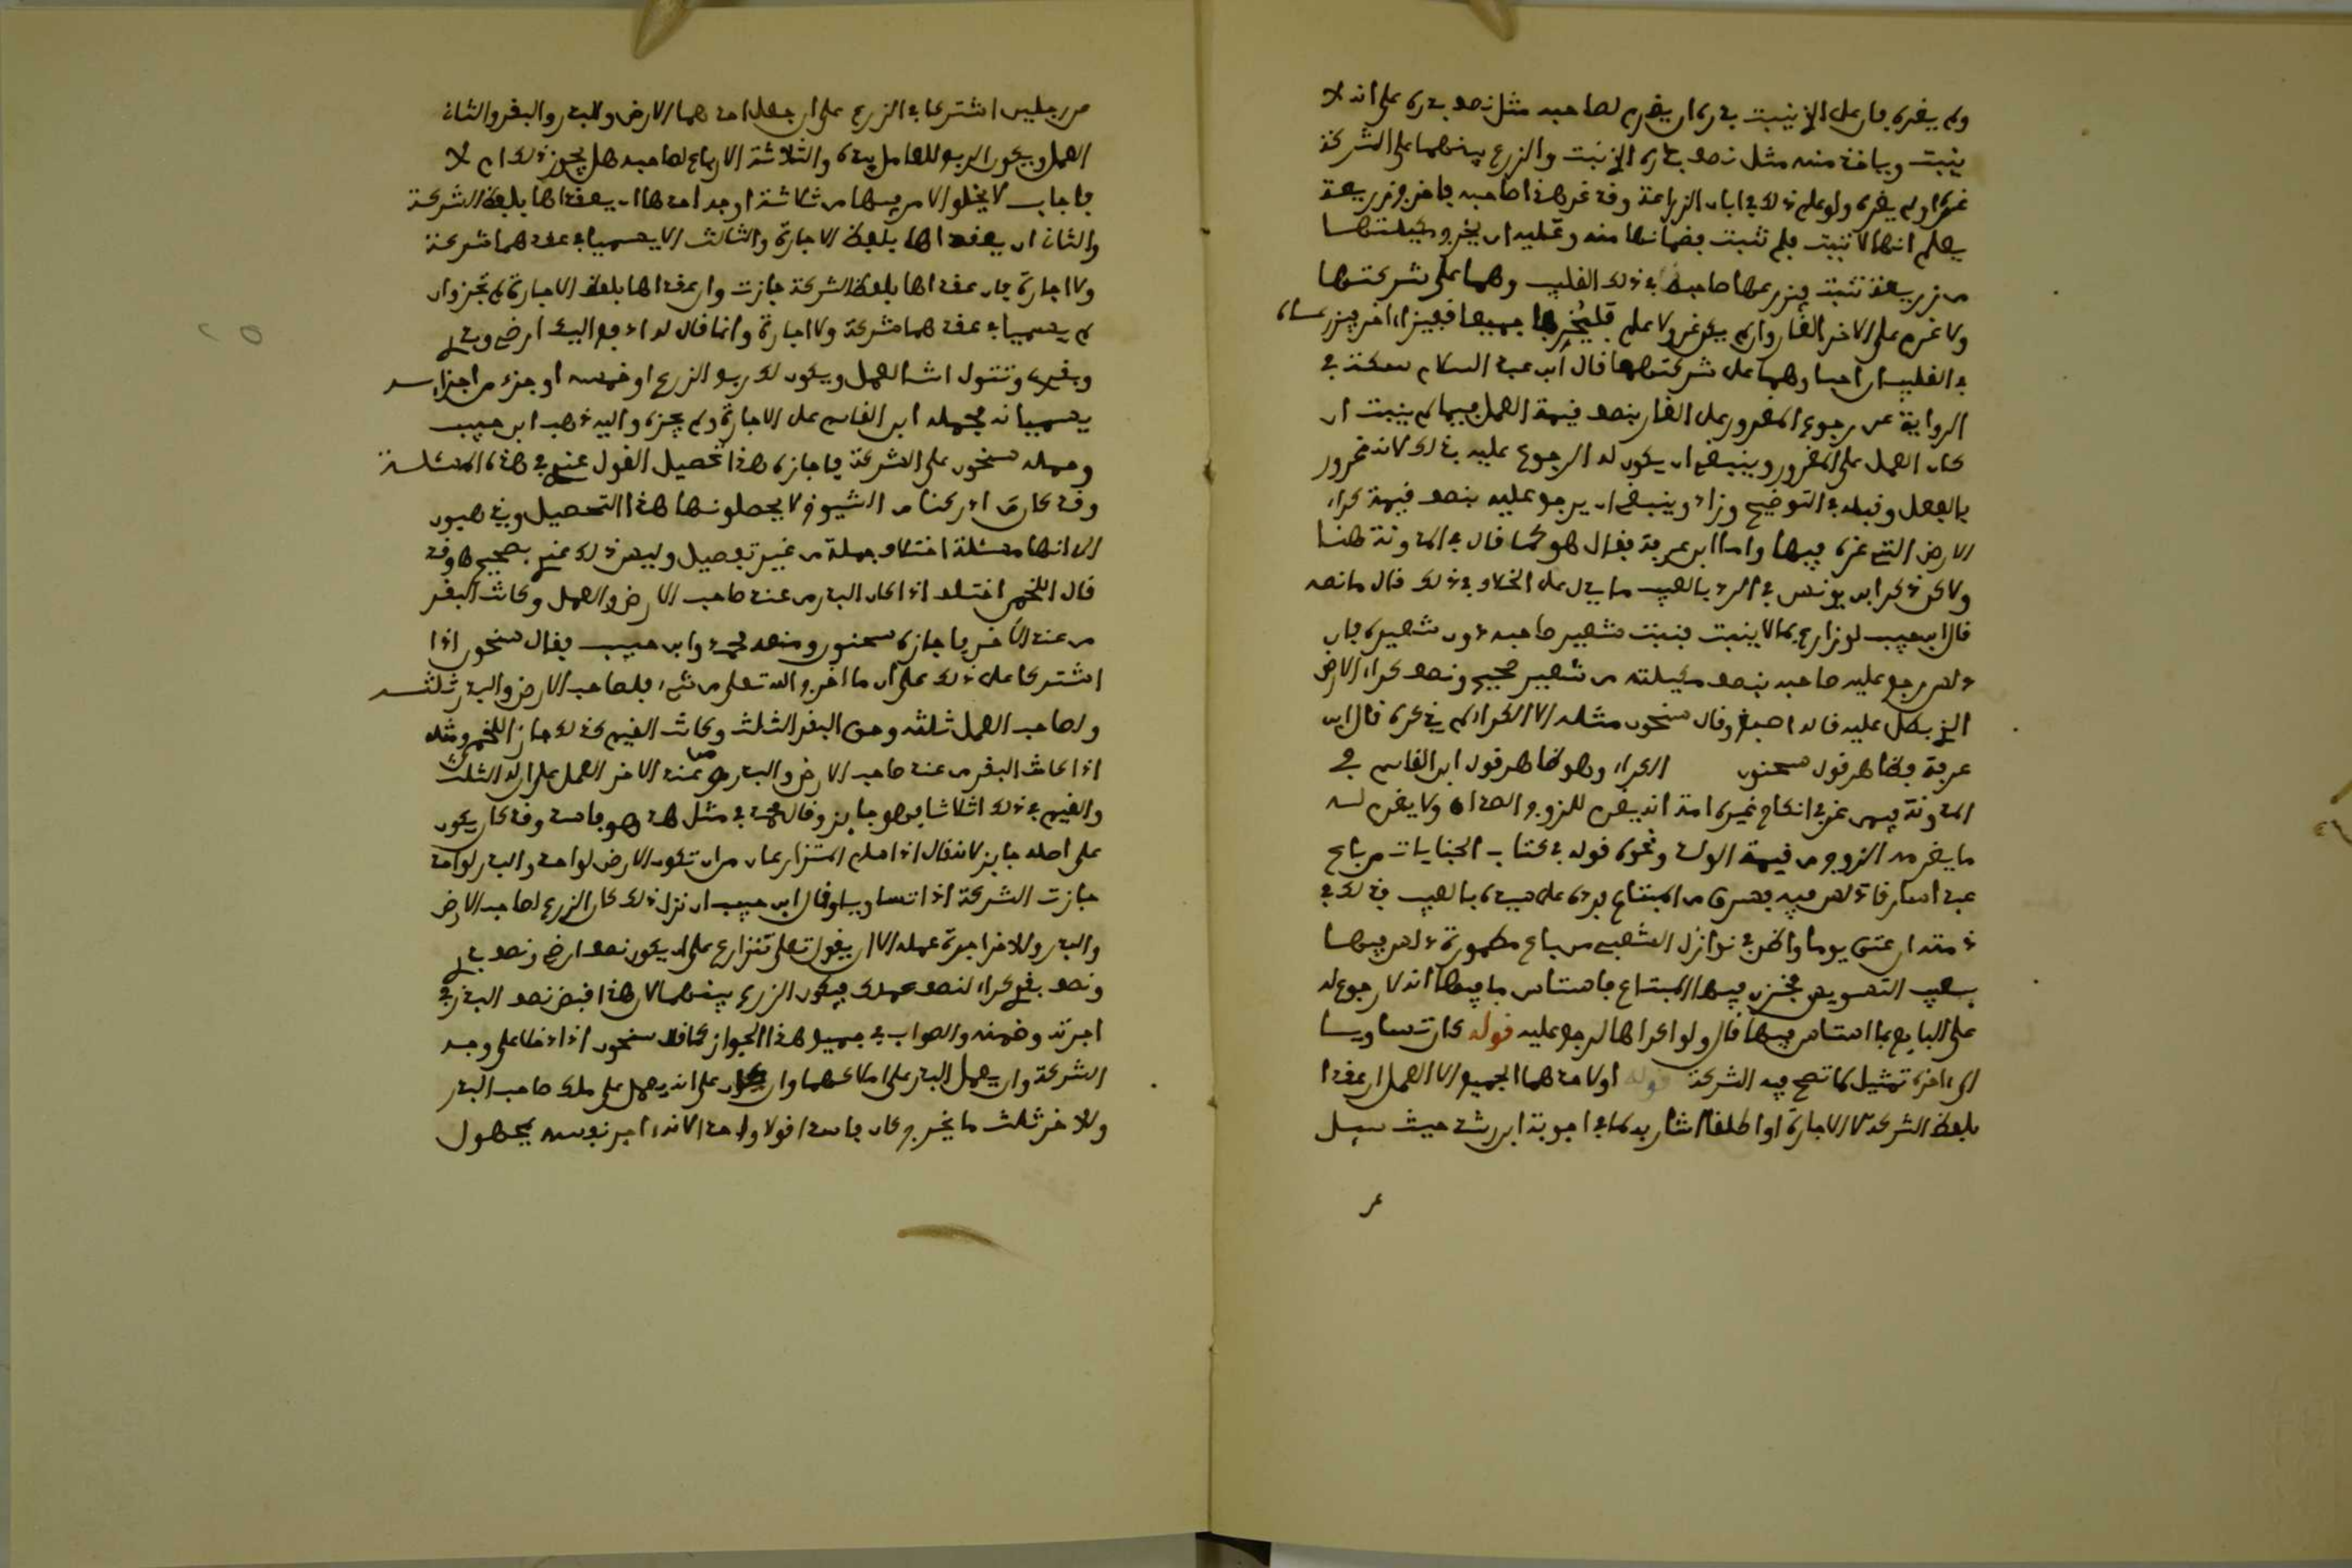 ولم يغره فإن على الذي ينبت بذره أن يغرم لصاحبه مثل نصف بذره على أنه لا
ينبت ويأخذ منه مثل نصف بذره الذي نبت والزرع بينهما على الشركة
غره أو لم يغره ولو علم ذلك في إبان الزراعة وقد غر هذا صاحبه فأخرج زريعة
يعلم أنها لا تنبت فلم تنبت فضمانها منه وعليه أن يخرج مكيلتها
من زريعة تنبت يزرعها صاحبه في ذلك القليب وهما على شركتهما
ولا غرم على الآخر الغار وإن لم يكن غر ولا علم فليخرجا جميعا قفيزا آخر يزرعانه
في القليب إن أحبا وهما على شركتهما قال ابن عبد السلام سكت في
الرواية عن رجوع المغرور على الغار بنصف قيمة العمل فيما لم ينبت إن
كان العمل على المغرور وينبغي أن يكون له الرجوع عليه بذلك لأنه غرور
بالفعل وقبله في التوضيح وزاد وينبغي أن يرجع عليه بنصف قيمة كراء
الأرض التي غره فيها وأما ابن عرفة فقال هو كما قال في المدونة هنا
ولاكن ذكر ابن يونس في الرد بالعيب ما يدل على الخلاف في ذلك قال ما نصه
قال ابن حبيب لو زارع بما لا ينبت فنبت شعير صاحبه دون شعيره فإن
دلس رجع عليه صاحبه بنصف مكيلته من شعير صحيح ونصف كراء الأرض
الذي بطل عليه قاله أصبغ وقال سحنون مثله إلا الكراء لم يذكره قال ابن
عرفة فظاهر قول سحنون الكراء وهو ظاهر قول ابن القاسم في
المدونة فيمن غر في إنكاح غيره أمته أنه يغرم للزوج الصداق ولا يغرم له
ما يغرمه الزوج من قيمة الولد ونحوه قوله في كتاب الجنايات من باع
عبدا سارقا دلس فيه فسرق من المبتاع فرده على سيده بالعيب فذلك في
ذمته إن عتق يوما وانظر في نوازل الشعبي من باع مطمورة دلس فيها
بعيب التسويس فخزن فيها المبتاع فاستاس ما فيها أنه لا رجوع له
على البايع بما استاس فيها قال ولو اكراها لرجع عليه قوله كأن تساويا
إلى آخره تمثيل لما تصح فيه الشركة قوله أو لأحدهما الجميع إلا العمل إن عقدا
بلفظ الشركة لا الإجارة أو أطلقا أشار به لما في أجوبة ابن رشد حيث سيل
عر
من رجلين اشتركا في الزرع على أن جعل أحدهما الأرض والبذر والبقر والثاني
العمل ويكون الربع للعامل بيده والثلاثة الأرباع لصاحبه هل يجوز ذلك أم لا
فأجاب لا يخلو الأمر فيها من ثلاثة أوجه أحدها أن يعقداها بلفظ الشركة
والثاني أن يعقداها بلفظ الإجارة والثالث ألا يسميا في عقدهما شركة
ولا إجارة فإن عقداها بلفظ الشركة جازت وإن عقداها بلفظ الإجارة لم تجز وإن
لم يسميا في عقدهما شركة ولا إجارة وإنما قال له أدفع إليك أرضي وبذري
وبقري وتتولى أنت العمل ويكون لك ربع الزرع أو خمسه أو جزء من أجزائه
يسميانه فحمله ابن القاسم على الإجارة ولم يجزه وإليه ذهب ابن حبيب
وحمله سحنون على الشركة فأجازه هذا تحصيل القول عندي في هذه المسئلة
وقد كان من أدركنا من الشيوخ لا يحصلونها هذا التحصيل ويذهبون
إلى أنها مسئلة اختلاف جملة من غير تفصيل وليس ذلك عندي بصحيح وقد
قال اللخمي اختلف إذا كان البذر من عند صاحب الأرض والعمل وكانت البقر
من عند الآخر فأجازه سحنون ومنعه محمد وابن حبيب فقال سحنون إذا
اشتركا على ذلك على أن ما أخرج الله تعلى من شيء فلصاحب الأرض والبذر ثلثه
ولصاحب العمل ثلثه وحق البقر الثلث وكانت القيم كذلك جاز اللخمي ومثله
إذا كانت البقر من عند صاحب الأرض والبذر ومن عند الآخر العمل على أن له الثلث
والقيم في ذلك أثلاثا فهو جايز وقال محمد في مثل هذا هو فاسد وقد كان يكون
على أصله جايز لأنه قال إذا سلم المتزارعان من أن تكون الأرض لواحد والبذر لواحد
جازت الشركة إذا تساويا وقال ابن حبيب إن نزل ذلك كان الزرع لصاحب الأرض
والبذر وللآخر أجرة عمله إلا أن يقول تعلى نتزارع على أن يكون نصف أرضي ونصف بذري
ونصف بقري كراء لنصف عملك فيكون الزرع بينهما لأن هذا قبض نصف البذر في
أجرته وضمنه والصواب في جميع هذا الجواز كما قال سحنون إذا دخلا على وجه
الشركة وأن يعمل البذر على أملاكهما وإن يكون على أنه يعمل على ملك صاحب البذر
وللآخر ثلث ما يخرج كان فاسدا قولا واحدا لأنه آجر نفسه بمجهول